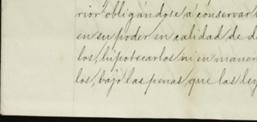 rior obligándose a conservar l
en su poder en calidad de de
los, hipotecarlos ni en maner
los, bajo las penas que las ley